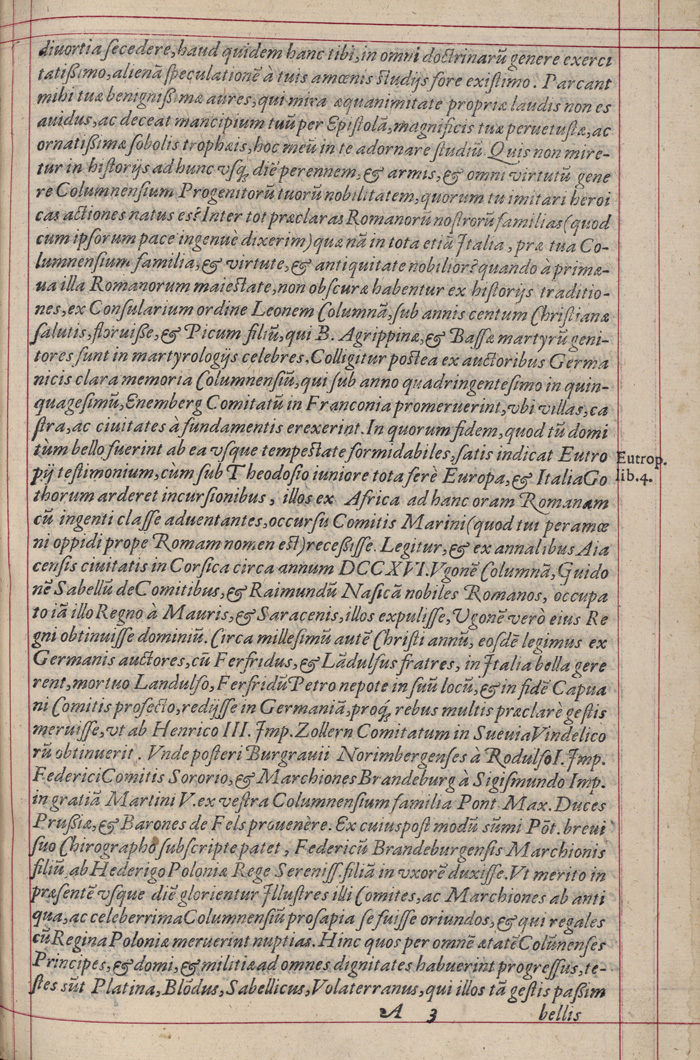 diuortia secedere, haud quidem hanc tibi, in omni doctrinarũ genere exerci
tatißimo, alienã speculationẽ à tuis amœnis studijs fore existimo. Parcant
mihi tuæ benignißimæ aures, qui mira æquanimitate propriæ laudis non es
auidus, ac deceat mancipium tuũ per Epistolã, magnificis tuæ peruetustæ, ac
ornatißimæ sobolis trophæis, hoc meũ in te adornare studiũ. Quis non mire-
tur in historijs ad hunc vsq; diẽ perennem, & armis, & omni virtutũ gene
re Columnensium Progenitorũ tuorũ nobilitatem, quorum tu imitari heroi
cas actiones natus es? Inter tot præclaras Romanorũ nostrorũ familias (quod
cum ipsorum pace ingenuè dixerim) quæ nã in tota etiã Italia, præ tua Co-
lumnensium familia, & virtute, & antiquitate nobilior? quando à primæ-
ua illa Romanorum maiestate, non obscuræ habentur ex historijs traditio-
nes, ex Consularium ordine Leonem Columnã, sub annis centum Christianæ
salutis, floruisse, & Picum filiũ, qui B. Agrippinæ, & Bassæ martyrũ geni-
tores sunt in martyrologijs celebres. Colligitur postea ex auctoribus Germa
nicis clara memoria Columnensiũ, qui sub anno quadringentesimo in quin-
quagesimũ, Enemberg Comitatũ in Franconia promeruerint, vbi villas, ca
stra, ac ciuitates à fundamentis erexerint. In quorum fidem, quod tũ domi
tùm bello fuerint ab ea vsque tempestate formidabiles, satis indicat Eutro
pij testimonium, cùm sub Theodosio iuniore tota ferè Europa, & Italia Go
thorum arderet incursionibus, illos ex Africa ad hanc oram Romanam
cũ ingenti classe aduentantes, occursu Comitis Marini (quod tui peramœ
ni oppidi prope Romam nomen est) receßisse. Legitur, & ex annalibus Aia
censis ciuitatis in Corsica circa annum DCCXVI. Vgonẽ Columnã, Guido
nẽ Sabellũ de Comitibus, & Raimundũ Nasicã nobiles Romanos, occupa
to iã illo Regno à Mauris, & Saracenis, illos expulisse, Vgonẽ verò eius Re
gni obtinuisse dominiũ. Circa millesimũ autẽ Christi annũ, eosdẽ legimus ex
Germanis auctores, cũ Ferfridus, & Lãdulfus fratres, in Italia bella gere
rent, mortuo Landulfo, Ferfridũ Petro nepote in suũ locũ, & in fidẽ Capua
ni Comitis profecto, redijsse in Germaniã, proq; rebus multis præclarè gestis
meruisse, vt ab Henrico III. Imp. Zollern Comitatum in Sueuia Vindelico
rũ obtinuerit. Vnde posteri Burgrauii Norimbergenses à Rodulfo I. Imp.
Federici Comitis Sororio, & Marchiones Brandeburg à Sigismundo Imp.
in gratiã Martini V. ex vestra Columnensium familia Pont Max. Duces
Prußiæ, & Barones de Fels prouenère. Ex cuius post modũ sũmi Põt. breui
suo Chirographo subscripte patet, Federicũ Brandeburgensis Marchionis
filiũ, ab Hederigo Poloniæ Rege Sereniss. filiã in vxorẽ duxisse. Vt merito in
præsentẽ vsque diẽ glorientur Illustres illi Comites, ac Marchiones ab anti
qua, ac celeberrima Columnensiũ prosapia se fuisse oriundos, & qui regales
cũ Regina Poloniæ meruerint nuptias. Hinc quos per omnẽ ætatẽ Colũnenses
Principes, & domi, & militiæ ad omnes dignitates habuerint progressus, te-
stes sũt Platina, Blõdus, Sabellicus, Volaterranus, qui illos tã gestis paßim
A 3 bellis
Eutrop.
lib. 4.